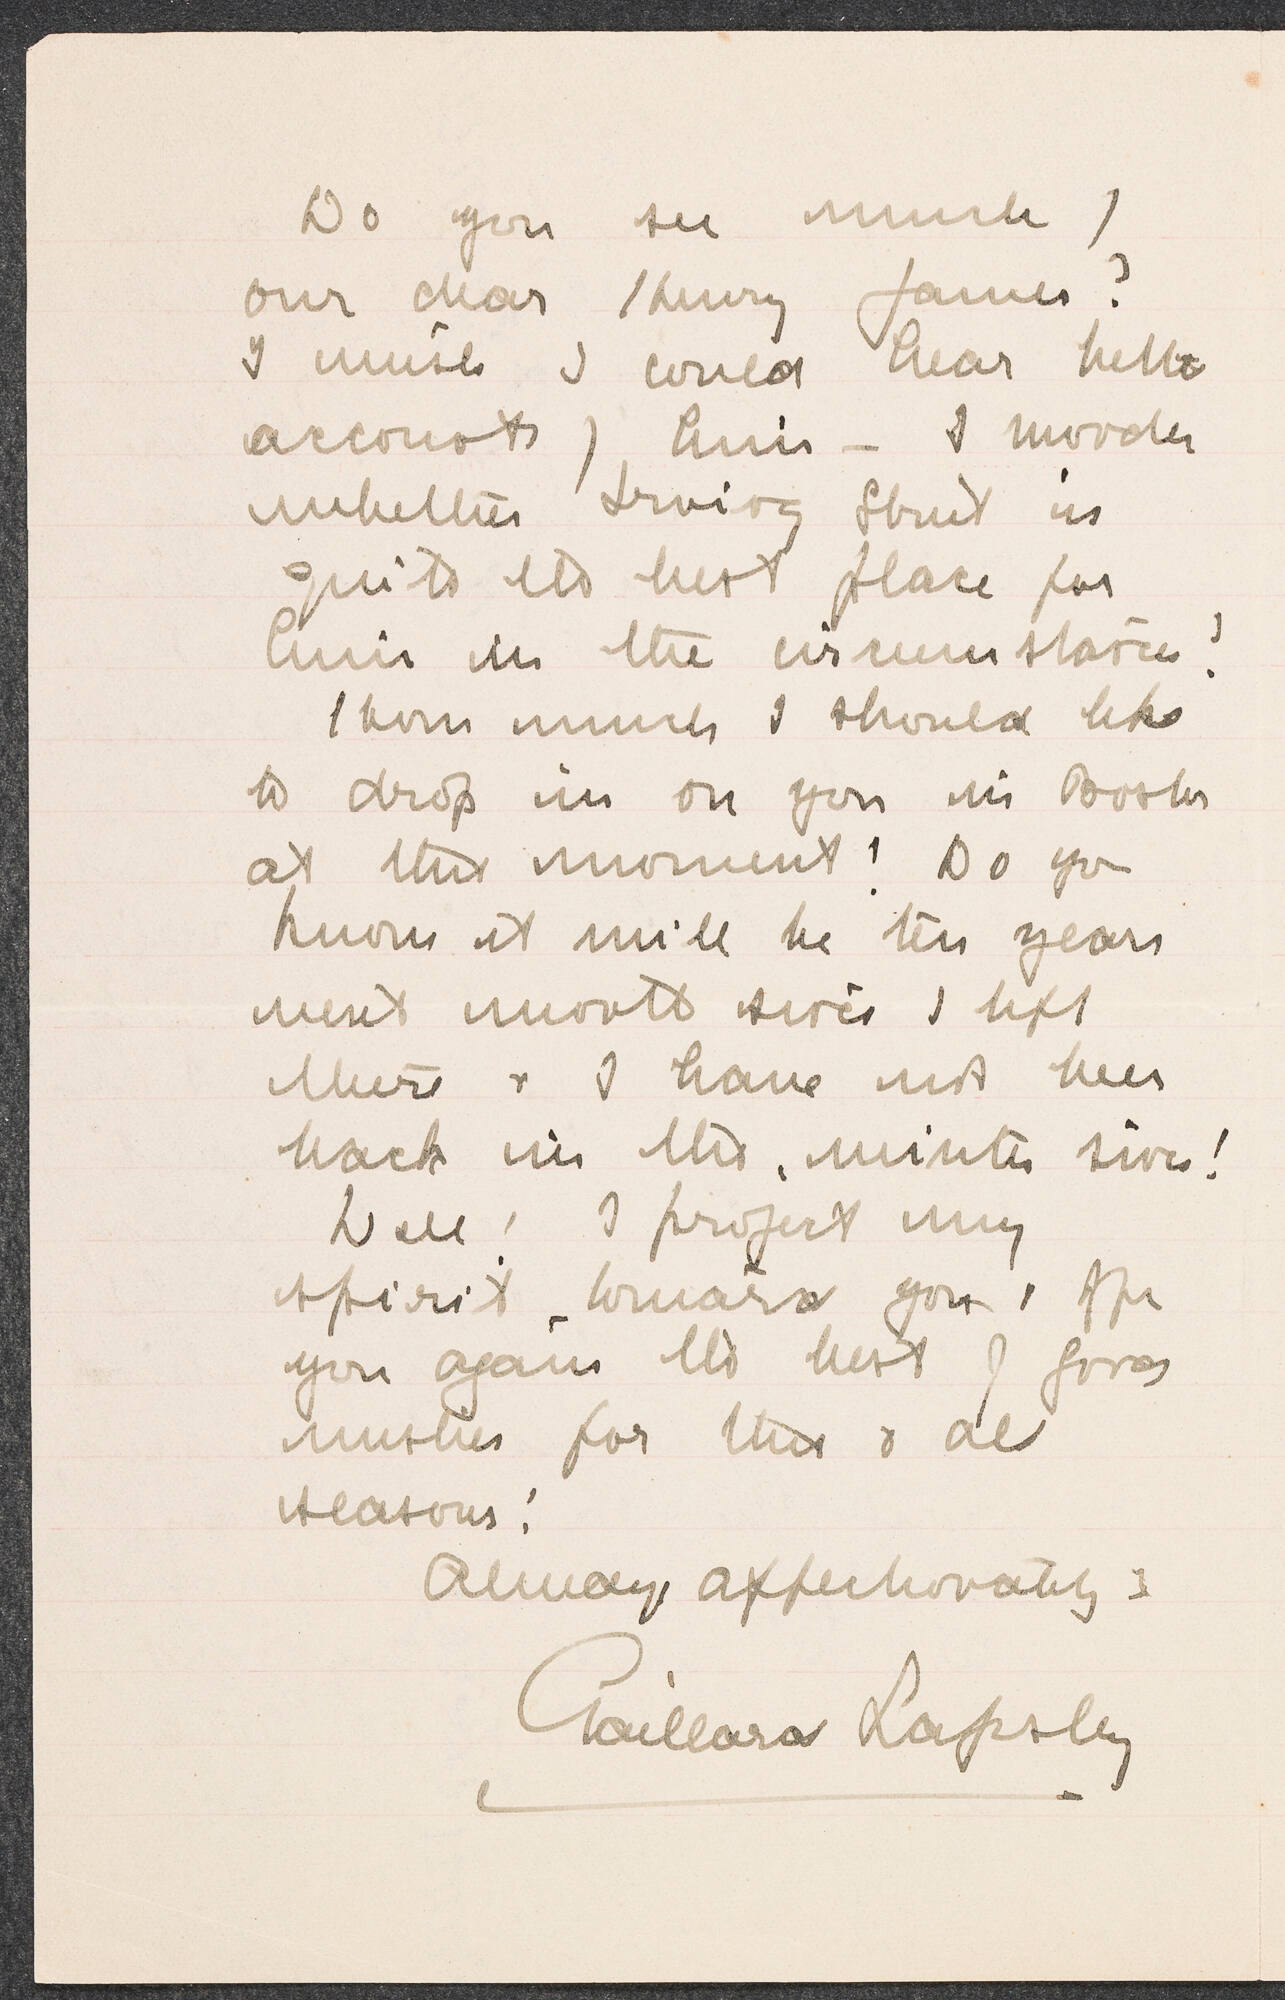 Do you see much of
our dear Henry James?
I wish I could hear better
accounts of him – I wonder
whether Irving Street is
quite the best place for
him in the circumstances?
How much I should like
to drop in on you in Boston
at this moment! Do you
know it will be ten years
next month since I left
there & I have not been
back in the winter since!
Well! I project my
spirit toward you & offer
you again the best of good
wishes for this & all
seasons!
Always affectionately
Gaillard Lapsley